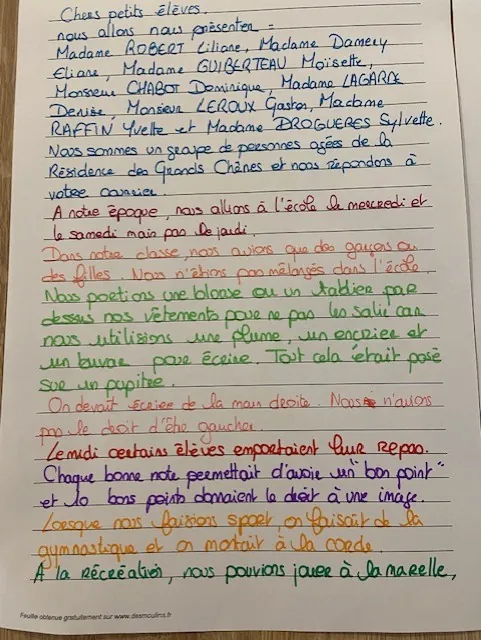 Chers petits élèves,
nous allons nous présenter :
Madame ROBERT Liliane, Madame Damery
Eliane, Madame GUIBERTEAU Moïsette,
Monsieur CHABOT Dominique, Madame LAGARDE
Denise, Monsieur LEROUX Gaston, Madame
RAFFIN Yvette et Madame DROGUERES Sylvette.
Nous sommes un groupe de personnes agées de la
Résidence des Grands Chênes et nous répondons à
votre courrier.
A notre époque, nous allions à l'école le mercredi et
le samedi main pas le jeudi.
Dans notre classe, nous avions que des garçons ou
des filles. Nous n'étions pas mélangés dans l'école.
Nous portions une blouse ou un tablier par
dessus nos vêtements pour ne pas les salir car
nous utilisions une plume, un encrier et
un buvar pour écrire. Tout cela était posé
sur un pupitre.
On devait écrire de la main droite. Nous n'avions
pas le droit d'être gaucher.
Le midi certains élèves emportaient leur repas.
Chaque bonne note permettait d'avoir un "bon point"
et 10 bons points donnaient le droit à une image.
Lorsque nous faisions sport, on faisait de la
gymnastique et on montait à la corde.
A la Récréation, nous pouvions jouer à la marelle,
Feuille obtenue gratuitement sur www.desmoulins.fr